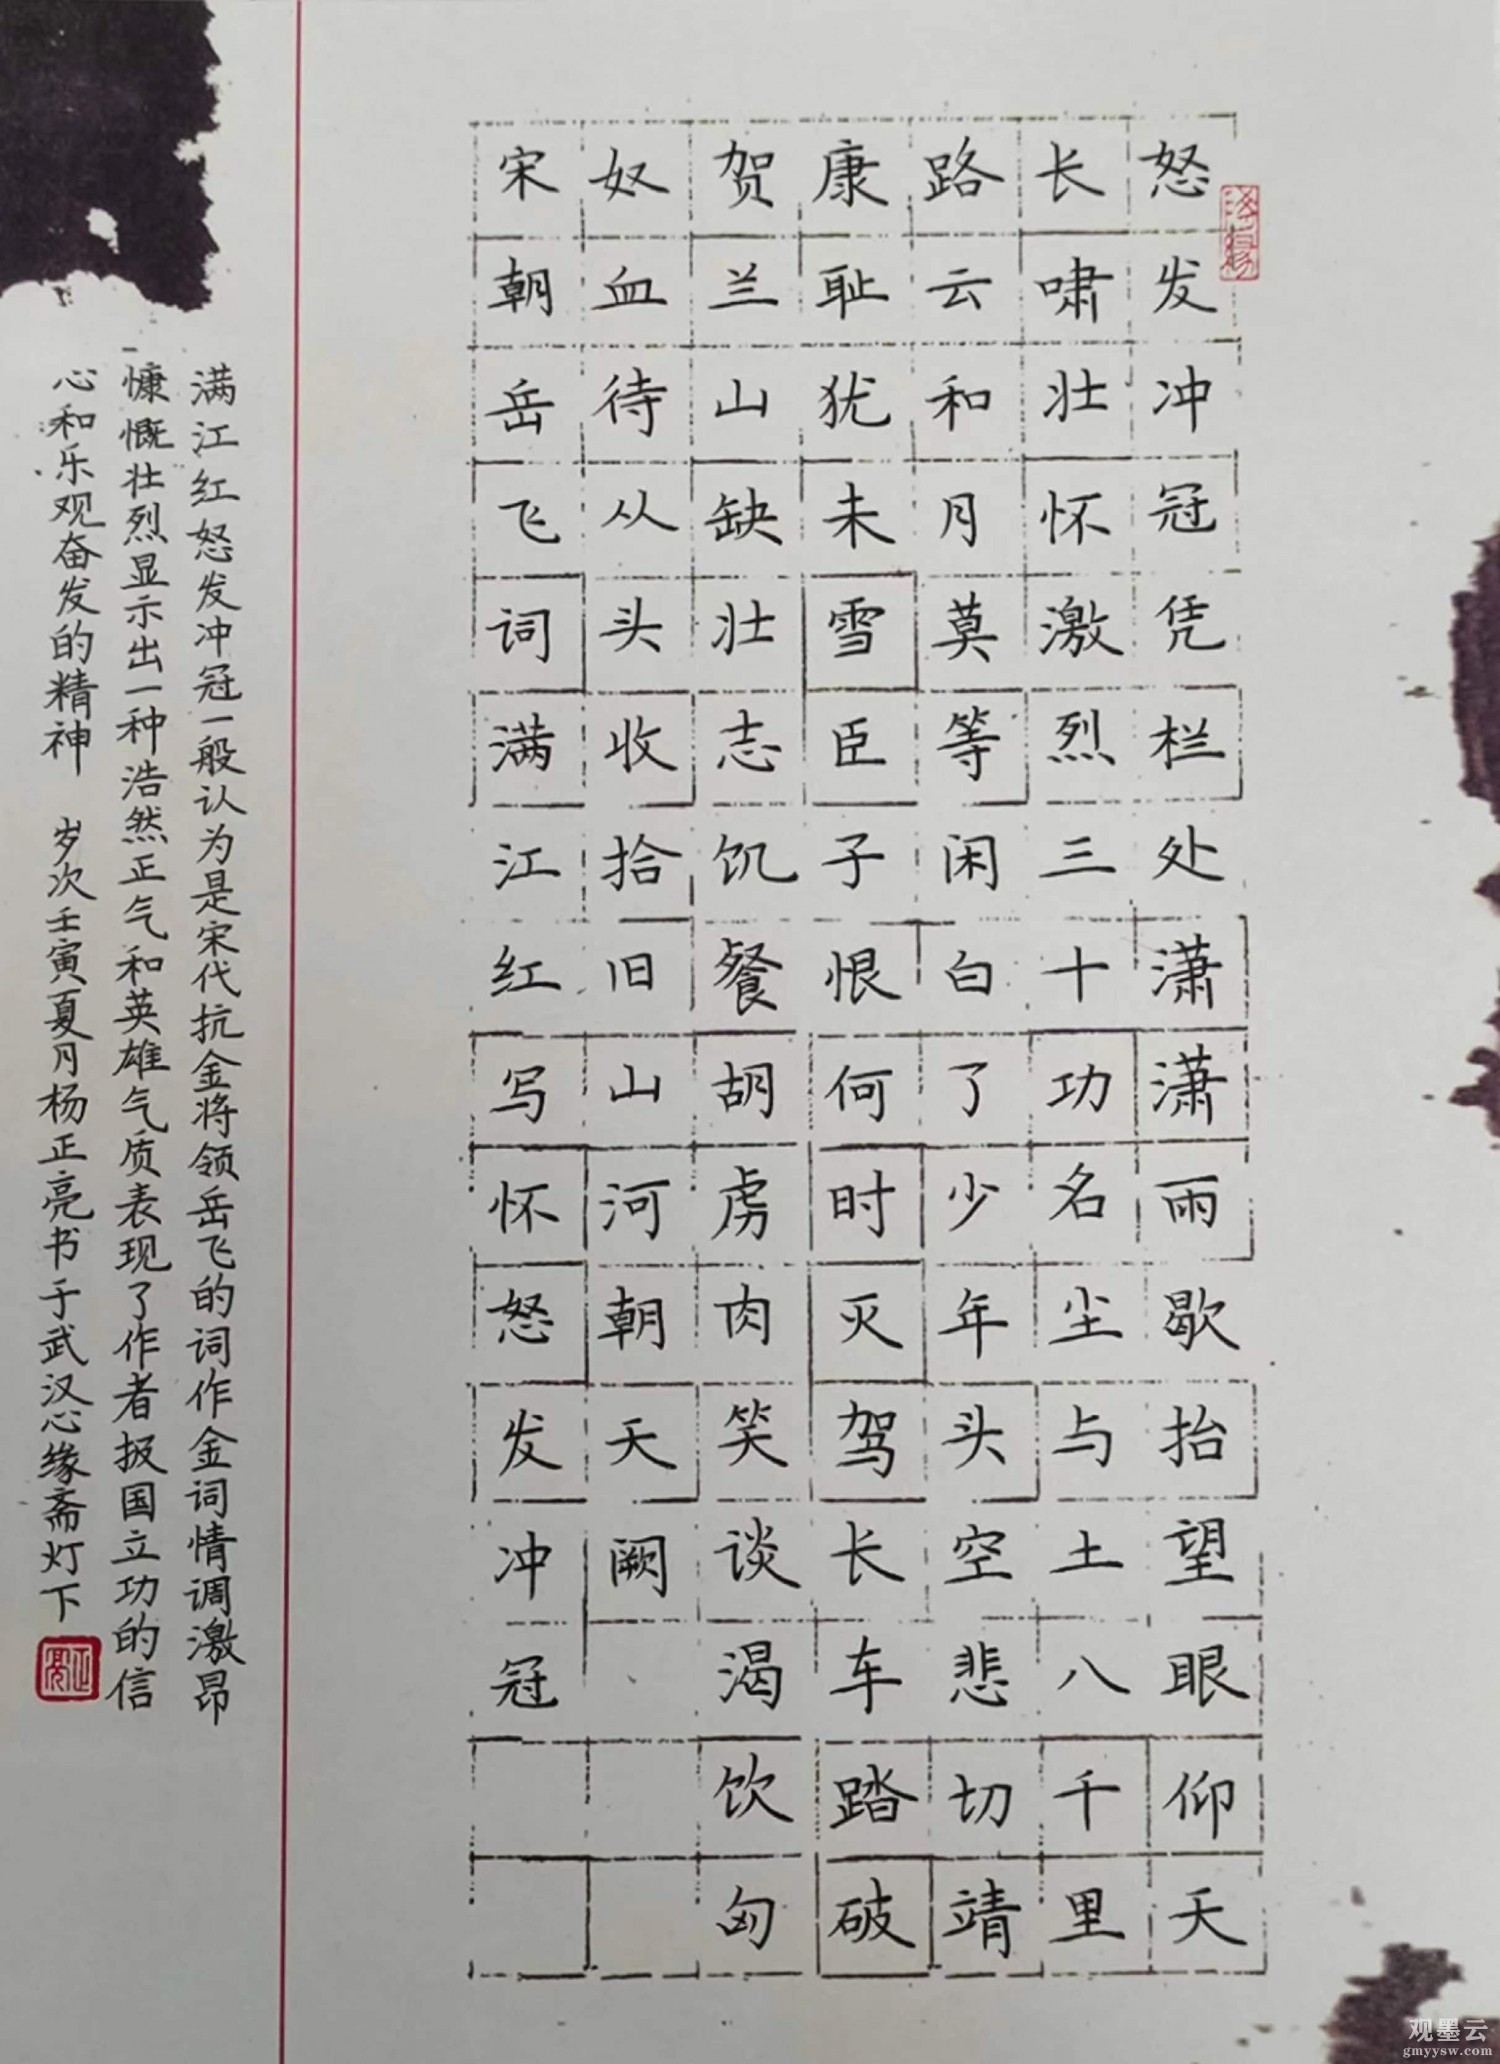 怒发冲冠凭栏处潇潇雨歇抬望眼仰天
长啸壮怀激烈三十功名尘与土八千里
路云和月莫等闲白了少年头空悲切靖
康耻犹未雪臣子恨何时灭驾长车踏破
贺兰山缺壮志饥餐胡虏肉笑谈渴饮匈
奴血待从头收拾旧山河朝天阙
宋朝岳飞词满江红写怀怒发冲冠
满江红怒发冲冠一般认为是宋代抗金将领岳飞的词作金词情调激昂
慷慨壮烈显示出一种浩然正气和英雄气质表现了作者报国立功的信
心和乐观奋发的精神 岁次壬寅夏月杨正亮书于武汉心缘斋灯下
观墨云
gmyysw.com